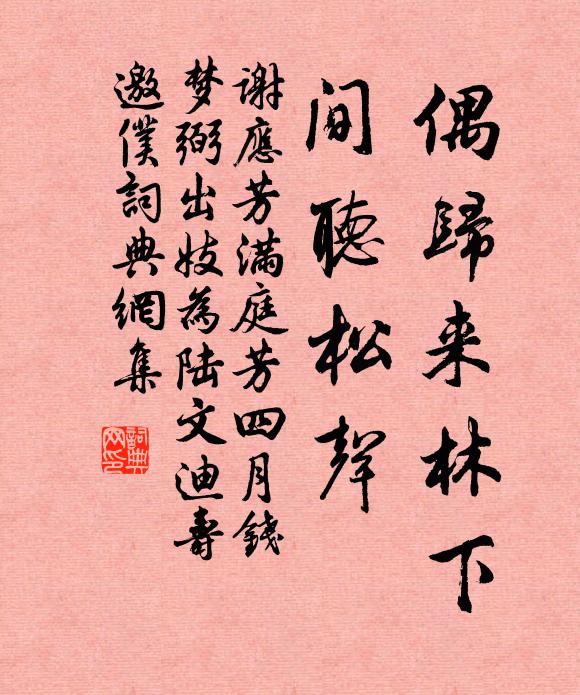 偶歸来林下
间聽松聲
謝應芳满庭芳四月錢
梦弼出妓為陆文迪壽
邀僕詞典網集
詞典网印